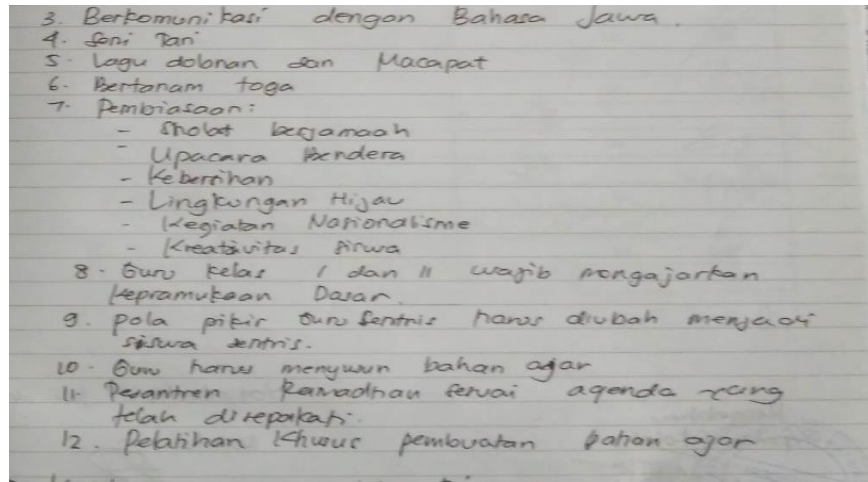 3. Berkomunikasi dengan Bahasa Jawa.
4. Seni Tari
5. Lagu dolanan dan Macapat
6. Bertanam toga
7. Pembiasaan:
- Sholat berjamaah
- Upacara Bendera
- Kebersihan
- Lingkungan Hijau
- Kegiatan Nasionalisme
- Kreativitas siswa
8. Guru kelas I dan II wajib mengajarkan
kepramukaan Dasar.
9. Pola pikir Guru Sentris harus diubah menjadi
siswa sentris.
10. Guru harus menyusun bahan ajar
11. Pesantren Ramadhan sesuai agenda yang
telah disepakati.
12. Pelatihan khusus pembuatan bahan ajar